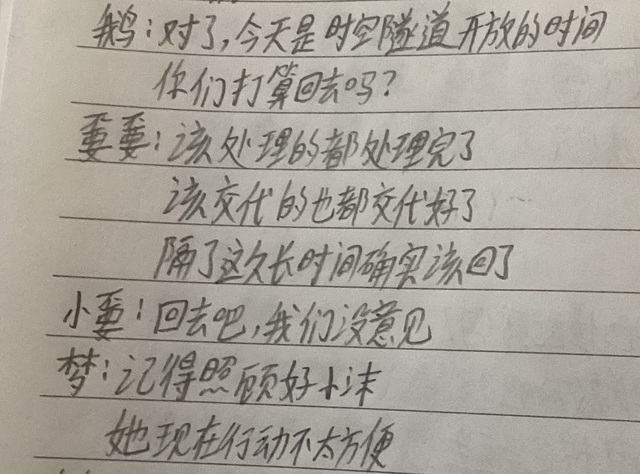 鹅：对了，今天是时空隧道开放的时间
你们打算回去吗？
要要：该处理的都处理完了
该交代的也都交代好了
隔了这久长时间确实该回了
小要：回去吧，我们没意见
梦：记得照顾好小沫
她现在行动不太方便